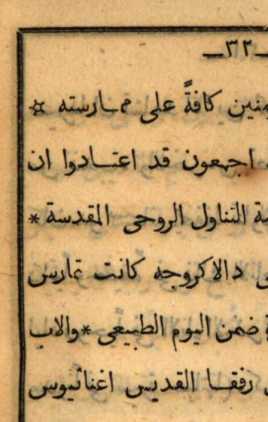 ـ٣٢ـ
ـمنين كافةً على ممـارسته ☆
اجمعون قد اعتـادوا ان
ـة التناول الروحى المقدسة *
ـى دالاكروجه كانت تمارس
ضمن اليوم الطبيعى * والاب
رفقـا القديس اغناثيوس